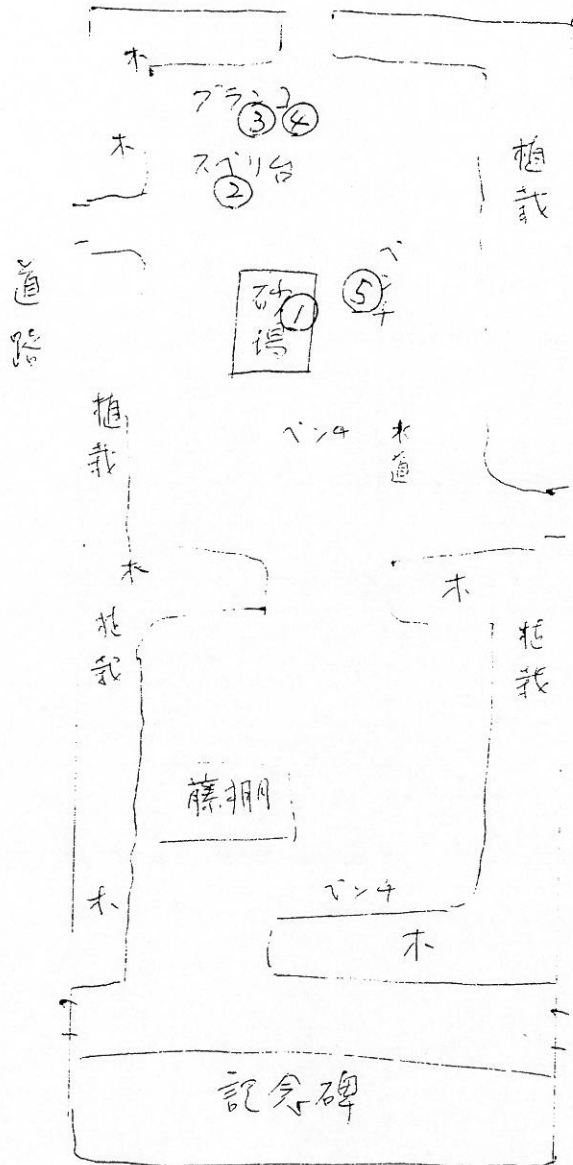 木
ブランコ
③ ④
木
スベリ台
②
植栽
道路
砂場
①
⑤
ベンチ
植栽
ベンチ
水道
木
木
植栽
植栽
藤棚
ベンチ
木
木
記念碑